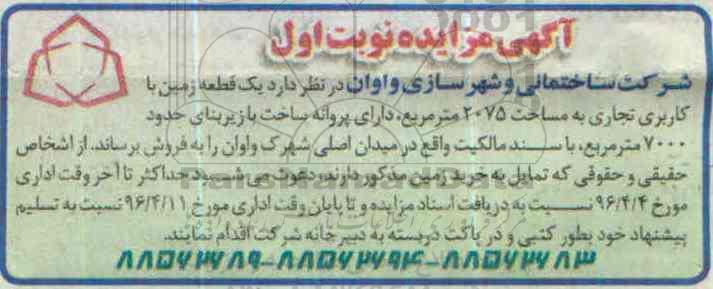 آگهی مزایده نوبت اول
شرکت ساختمانی و شهرسازی واوان در نظر دارد یک قطعه زمین با
کاربری تجاری به مساحت ۲۰۷۵ مترمربع، دارای پروانه ساخت با زیربنای حدود
۷۰۰۰ مترمربع، با سند مالکیت واقع در میدان اصلی شهرک واوان را به فروش برساند. از اشخاص
حقیقی و حقوقی که تمایل به خرید زمین مذکور دارند، دعوت می شود حداکثر تا آخر وقت اداری
مورخ ۹۶/۴/۴ نسبت به دریافت اسناد مزایده و تا پایان وقت اداری مورخ ۹۶/۴/۱۱ نسبت به تسلیم
پیشنهاد خود بطور کتبی و در پاکت دربسته به دبیرخانه شرکت اقدام نمایند.
۸۸۵۶۲۶۸۳-۸۸۵۶۲۶۹۴-۸۸۵۶۲۶۸۹
ParsNamadData